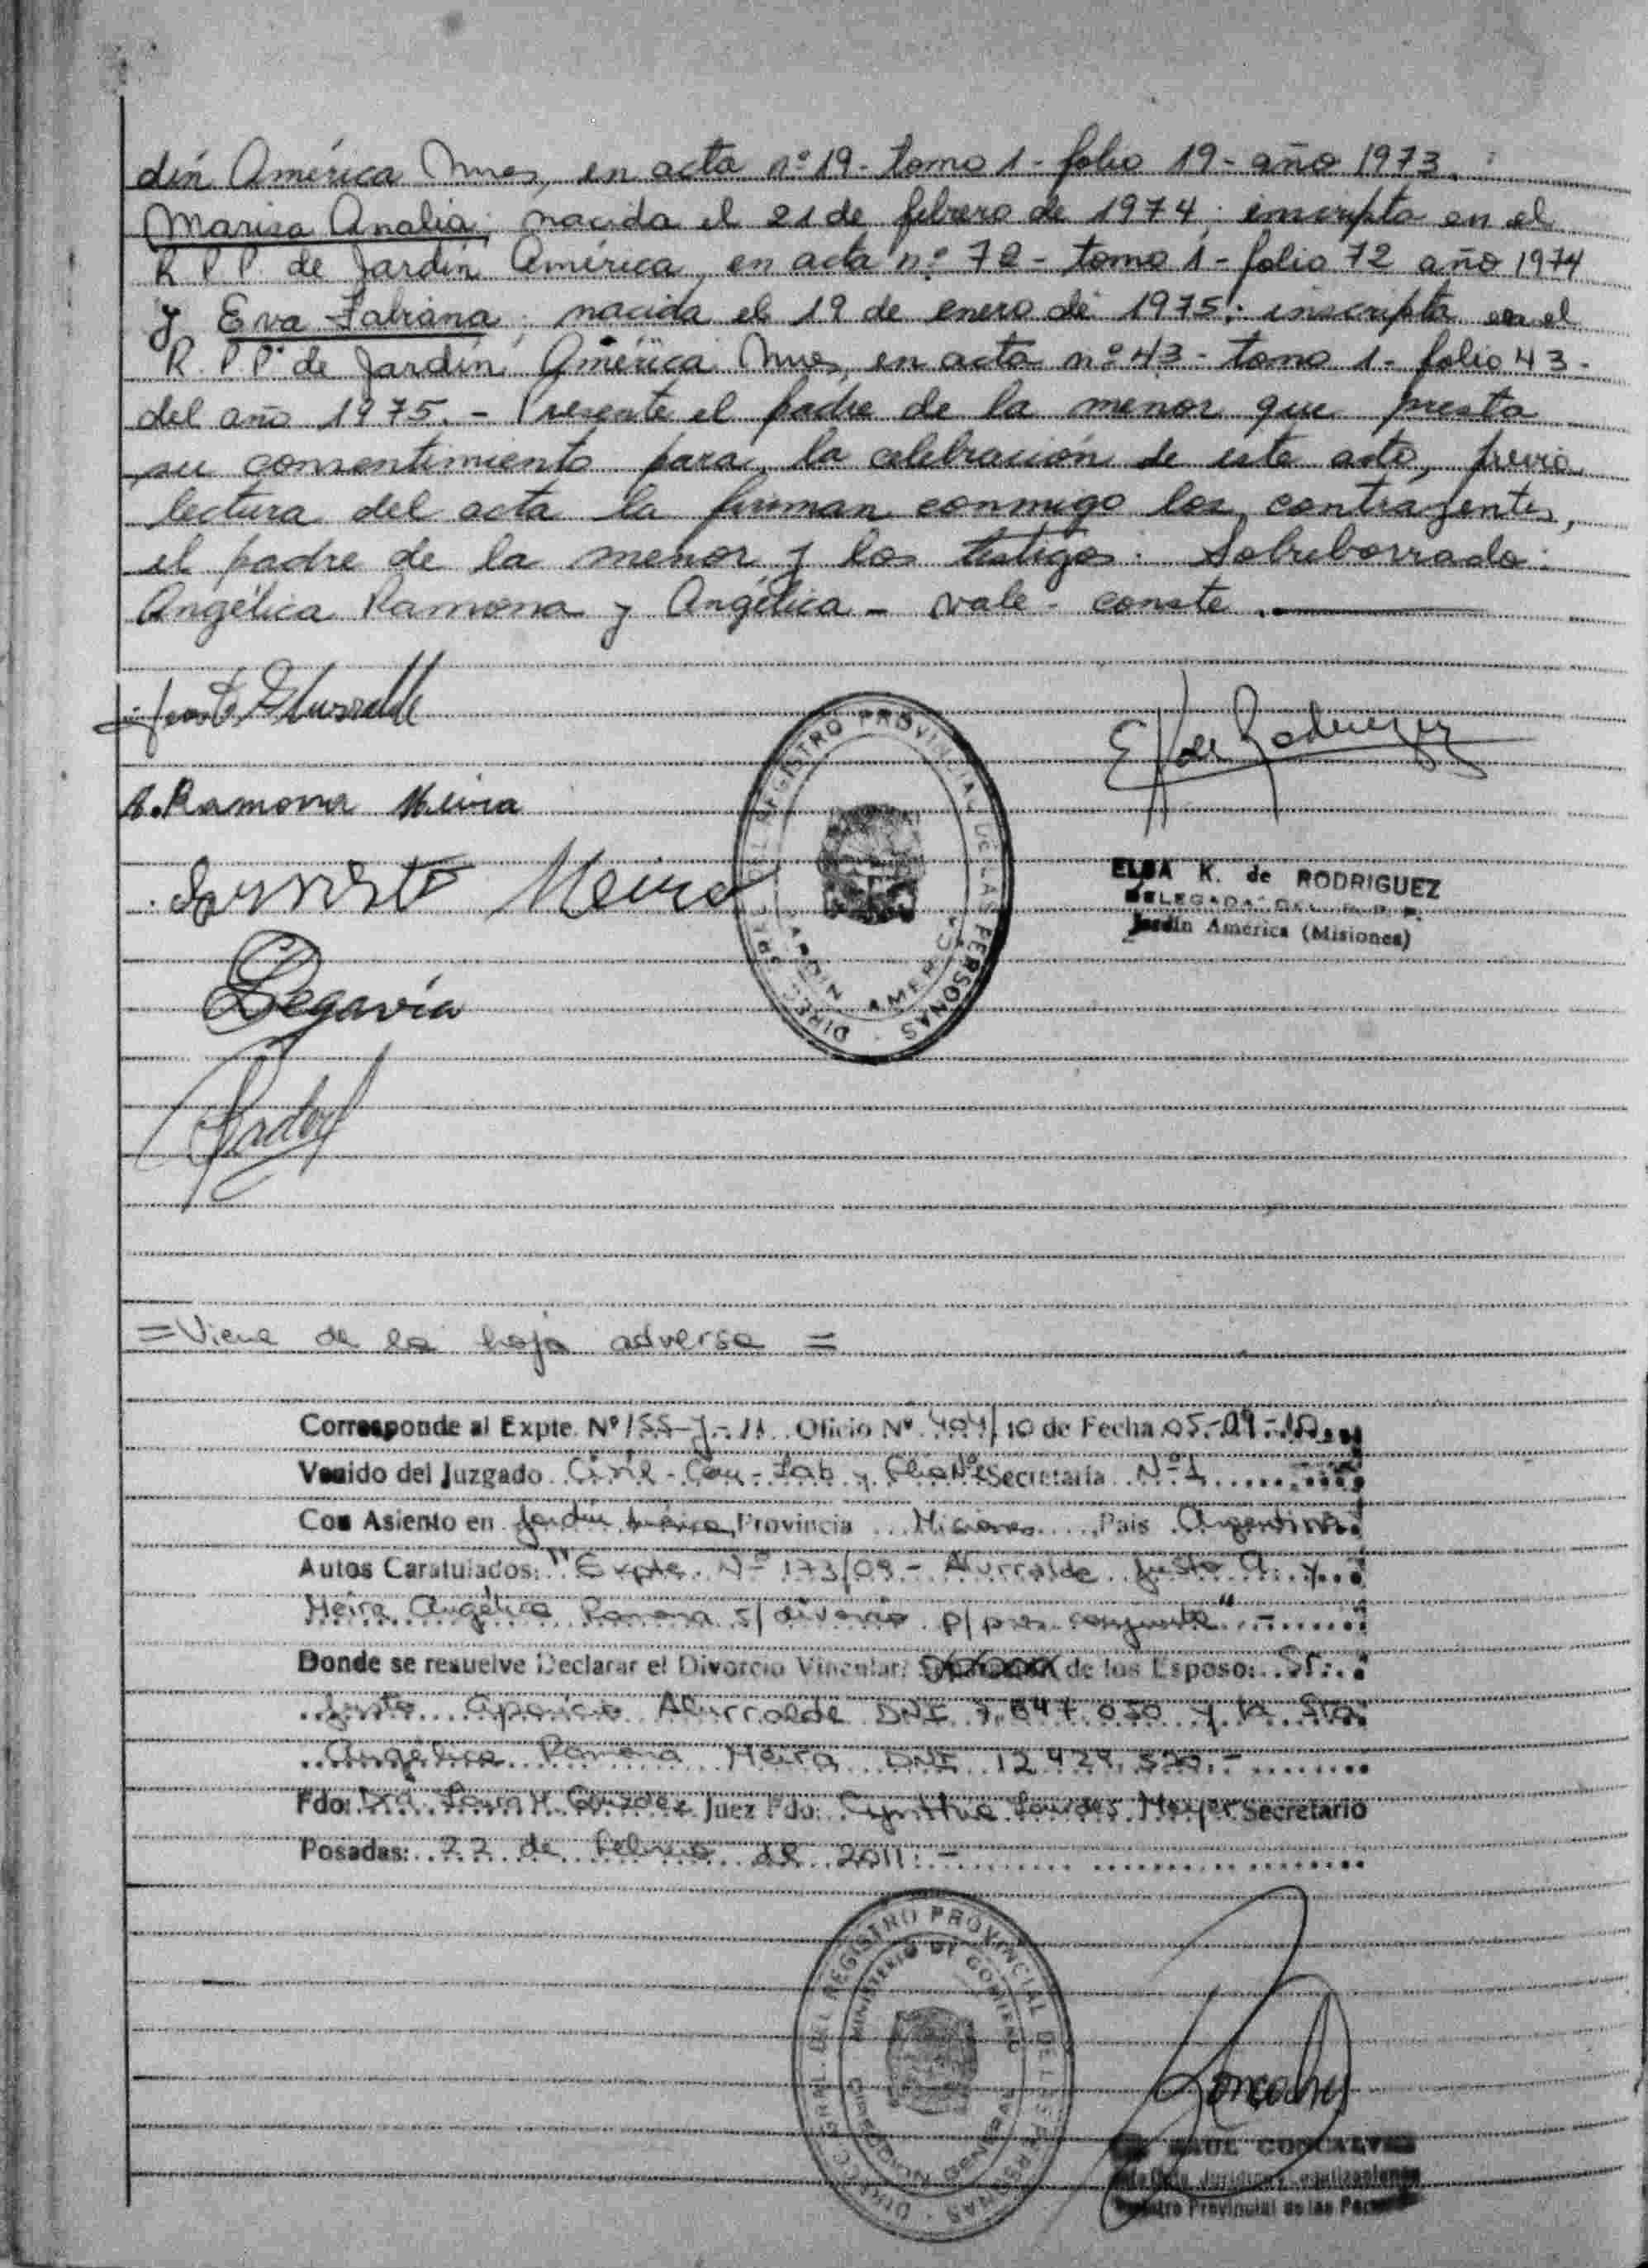 dín América Mnes, en acta nº 19 - tomo 1 - folio 19 - año 1973. :
Marisa Analia; nacida el 21 de febrero de 1974; inscripta en el
R.P.P. de Jardín América, en acta nº 72 - tomo 1 - folio 72 año 1974
y Eva Fabiana; nacida el 19 de enero de 1975; inscripta en el
R.P.P. de Jardín América Mnes, en acta nº 43 - tomo 1 - folio 43 -
del año 1975. - Presente el padre de la menor que presta
su consentimiento para la celebración de este acto, previa
lectura del acta la firman conmigo los contrayentes,
el padre de la menor y los testigos: Sobreborrado:
Angélica Ramona y Angélica - vale - conste.
A. Ramona Meira
Meira
Segovia
E K de Rodriguez
DIREC. GRAL. DEL REGISTRO PROVINCIAL DE LAS PERSONAS
JARDIN AMERICA
ELSA K. de RODRIGUEZ
DELEGADA DEL R. P. P.
Jardín América (Misiones)
= Viene de la hoja adversa =
Corresponde al Expte. Nº 155-J-11 Oficio Nº 404/10 de Fecha 05-09-10
Venido del Juzgado Civil - Com - Lab y Flia Secretaría Nº 1
Con Asiento en Jardín América, Provincia Misiones, País Argentina
Autos Caratulados: "Expte. Nº 173/09 - Alurralde Justo A. y
Meira Angélica Ramona s/ divorcio p/ pres. conjunta" -
Donde se resuelve Declarar el Divorcio Vincular: de los Esposo: Sr.
Justo Aparicio Alurralde DNI 7.847.050 y la Sra.
Angélica Ramona Meira DNI 12.429.520. -
Fdo: Dra. Juez Fdo: Cynthia Lourdes Meyer Secretario
Posadas: 22 de Febrero de 2011. -
DIREC. GRAL. DEL REGISTRO PROVINCIAL DE LAS PERSONAS
MINISTERIO DE GOBIERNO
RAUL GONCALVES
Registro Provincial de las Personas